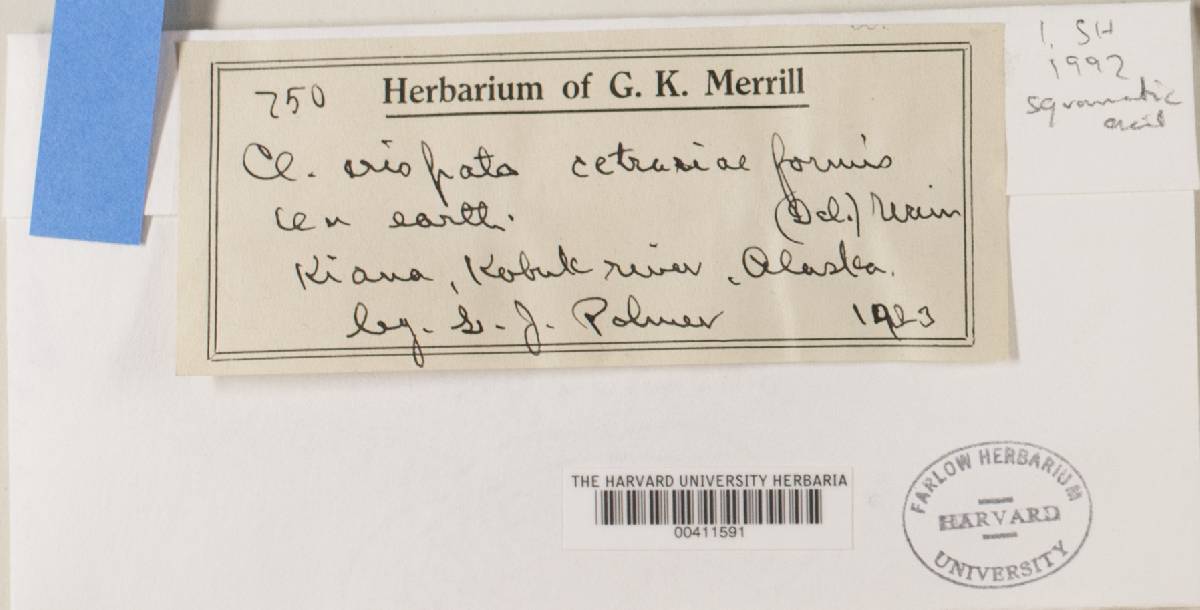 1. SH
1992
squamatic
acid
750
Herbarium of G. K. Merrill
Cl. crispata cetrariaeformis
On earth.
(Del.) Wain
Kiana, Kobuk river, Alaska.
leg. L. J. Palmer 1923
THE HARVARD UNIVERSITY HERBARIA
00411591
FARLOW HERBARIUM
HARVARD
UNIVERSITY